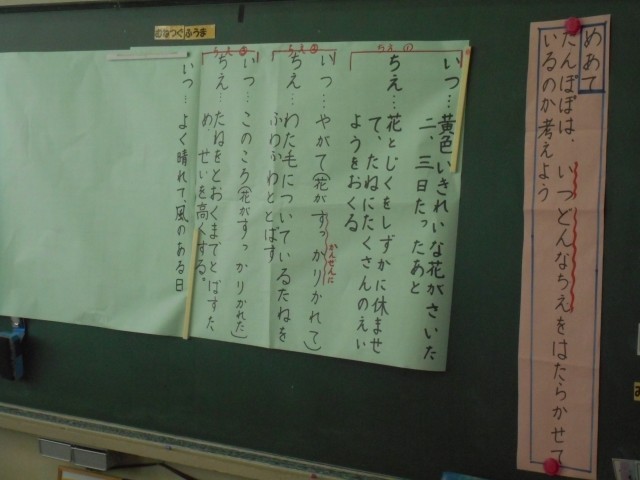 めあて
たんぽぽは、いつどんなちえをはたらかせて
いるのか考えよう
ちえ①
いつ…黄色いきれいな花がさいた
二、三日たったあと
ちえ…花とじくをしずかに休ませ
て、たねにたくさんのえい
ようをおくる
ちえ②
いつ…やがて(花がすっかりかれて)
かんぜんに
ちえ…わた毛についているたねを
ふわふわととばす
ちえ③
いつ…このころ(花がすっかりかれた)
ちえ…たねをとおくまでとばすた
め、せいを高くする。
いつ…よく晴れて風のある日
むなつぐふうま